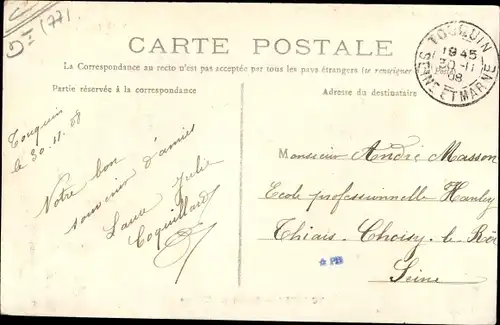 5I (77).
CARTE POSTALE
La Correspondance au recto n'est pas acceptée par tous les pays étrangers (se renseigner
Poste)
Partie réservée à la correspondance
Adresse du destinataire
TOUQUIN
19 45
30-11
08
SEINE ET MARNE
Touquin
le 30.11.08
Notre bon
souvenir d'amies
Laure Julie
Coquillard
Monsieur André Masson
Ecole professionnelle Hanley
Thiais. Choisy. le Roi
Seine